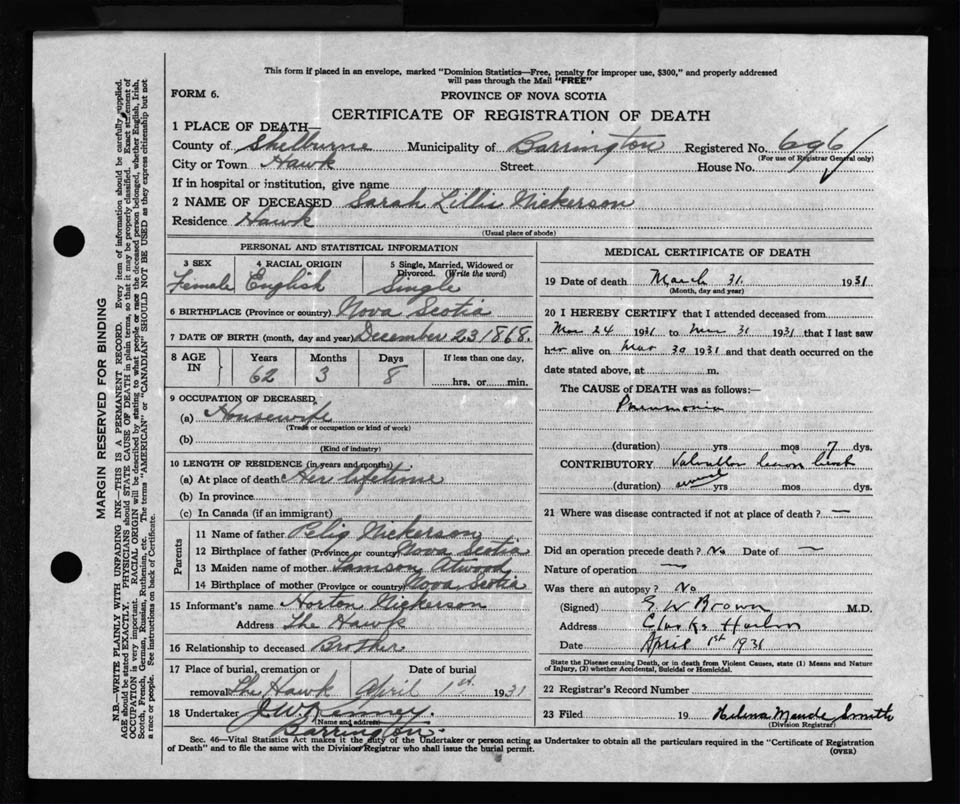 This form if placed in an envelope, marked "Dominion Statistics—Free, penalty for improper use, $300," and properly addressed
will pass through the Mail "FREE"
FORM 6.
PROVINCE OF NOVA SCOTIA
CERTIFICATE OF REGISTRATION OF DEATH
1 PLACE OF DEATH—
County of Shelburne Municipality of Barrington Registered No. 696
(For use of Registrar General only)
City or Town Hawk Street House No.
If in hospital or institution, give name
2 NAME OF DECEASED Sarah Lillis Nickerson
Residence Hawk
(Usual place of abode)
PERSONAL AND STATISTICAL INFORMATION
3 SEX 4 RACIAL ORIGIN 5 Single, Married, Widowed or
Divorced. (Write the word)
Female English Single
6 BIRTHPLACE (Province or country) Nova Scotia
7 DATE OF BIRTH (month, day and year) December 23 1868.
8 AGE IN Years Months Days If less than one day,
62 3 8 hrs. or min.
9 OCCUPATION OF DECEASED,
(a) Housewife
(Trade or occupation or kind of work)
(b)
(Kind of industry)
10 LENGTH OF RESIDENCE (in years and months)
(a) At place of death Her lifetime
(b) In province
(c) In Canada (if an immigrant)
Parents
11 Name of father Pelig Nickerson
12 Birthplace of father (Province or country) Nova Scotia
13 Maiden name of mother Tamson Atwood
14 Birthplace of mother (Province or country) Nova Scotia
15 Informant's name Horton Nickerson
Address The Hawk
16 Relationship to deceased Brother
17 Place of burial, cremation or Date of burial
removal The Hawk April 1st. 1931
18 Undertaker J. W. Kenney.
(Name and address)
Barrington.
MEDICAL CERTIFICATE OF DEATH
19 Date of death March 31. 1931
(Month, day and year)
20 I HEREBY CERTIFY that I attended deceased from
Mar 24 1931 to Mar 31 1931 that I last saw
her alive on Mar 30 1931 and that death occurred on the
date stated above, at m.
The CAUSE of DEATH was as follows:—
Pneumonia
(duration) yrs mos 7 dys.
CONTRIBUTORY Valvular heart
(duration) several yrs mos dys.
21 Where was disease contracted if not at place of death? —
Did an operation precede death? No Date of —
Nature of operation —
Was there an autopsy? No
(Signed) E W Brown M.D.
Address Clarks Harbor
Date April 1st 1931
State the Disease causing Death, or in death from Violent Causes, state (1) Means and Nature
of Injury, (2) whether Accidental, Suicidal or Homicidal.
22 Registrar's Record Number
23 Filed 19 Helena Maude Smith
(Division Registrar)
Sec. 46—Vital Statistics Act makes it the duty of the Undertaker or person acting as Undertaker to obtain all the particulars required in the "Certificate of Registration
of Death" and to file the same with the Division Registrar who shall issue the burial permit.
(OVER)
MARGIN RESERVED FOR BINDING
N.B.—WRITE PLAINLY WITH UNFADING INK—THIS IS A PERMANENT RECORD. Every item of information should be carefully supplied.
AGE should be stated EXACTLY. PHYSICIANS should STATE CAUSE OF DEATH in plain terms, so that it may be properly classified. Exact statement of
OCCUPATION is very important. RACIAL ORIGIN will be described by stating to what people or race the deceased person belonged, whether English, Irish,
Scotch, French, German, Russian, Ruthenian, etc. The terms "AMERICAN" or "CANADIAN" SHOULD NOT BE USED as they express citizenship but not
a race or people. See instructions on back of Certificate.